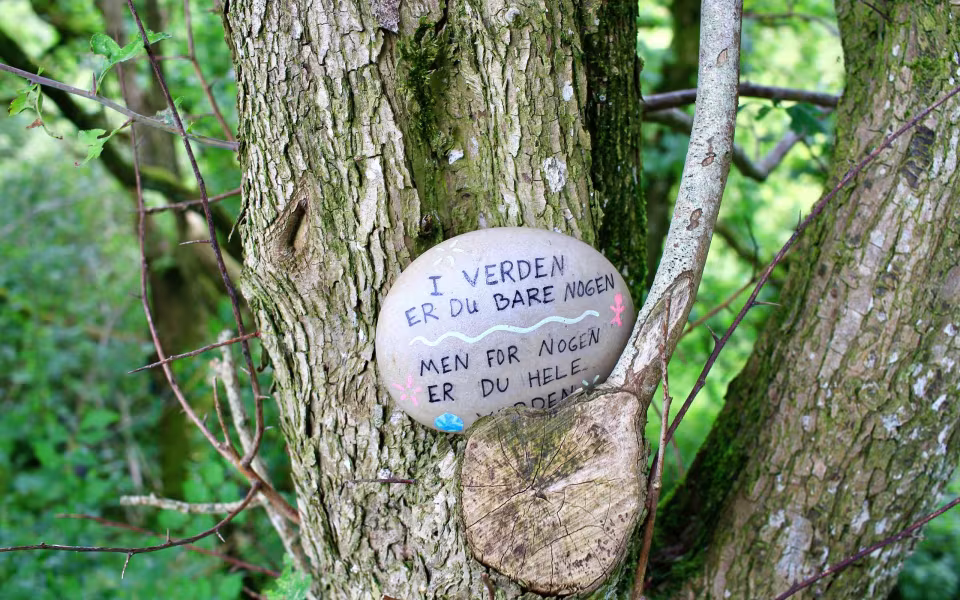 I VERDEN
ER DU BARE NOGEN
MEN FOR NOGEN
ER DU HELE
VERDEN